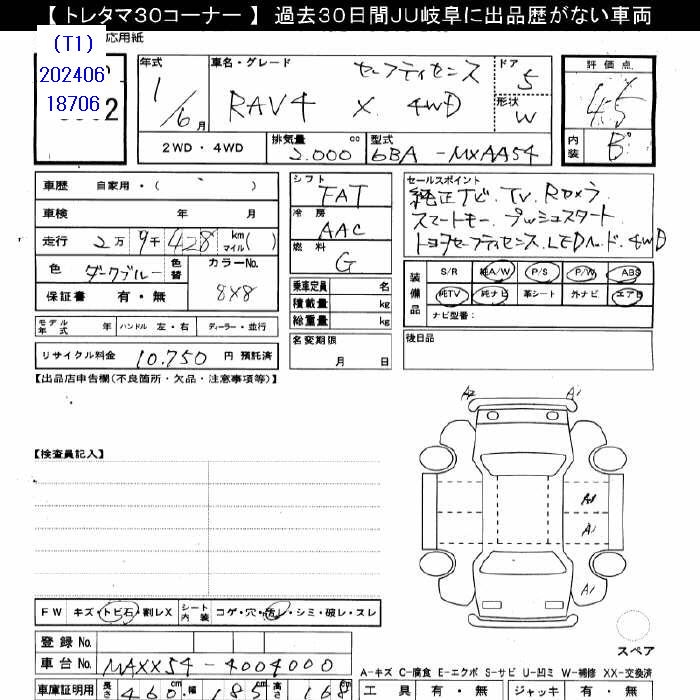 【 トレタマ30コーナー 】 過去30日間JU岐阜に出品歴がない車両
(T1)
202406
18706
応用紙
2
年式
1/6 月
車名・グレード
セーフティセンス
RAV4 X 4WD
ドア
5
形状
W
評価点
4.5
内装
B
2WD・4WD
排気量 cc
2.000
型式
6BA - MXAA54
車歴 自家用・( )
車検 年 月
走行 2万 9千 428 km マイル( )
色 ダークブルー 色替
カラーNo.
8X8
保証書 有・無
モデル年式 年 ハンドル 左・右 ディーラー・並行
リサイクル料金 10.750 円 預託済
シフト
FAT
冷房
AAC
燃料
G
乗車定員 名
積載量 kg
総重量 kg
名変期限
月 日
セールスポイント
純正ナビ. TV. Rカメラ
スマートキー. プッシュスタート
トヨタセーフティセンス. LEDヘッド. 4WD
装備品
S/R 純A/W P/S P/W ABS
純TV 純ナビ 革シート 外ナビ エアB
ナビ型番:
後日品
【出品店申告欄(不良箇所・欠品・注意事項等)】
【検査員記入】
A2 A1
A2
A1
A1
スペア
FW キズ・トビ石・割レX シート内装 コゲ・穴・汚レ・シミ・破レ・スレ
登録 No.
車台 No. MAXX54-4004000
A-キズ C-腐食 E-エクボ S-サビ U-凹ミ W-補修 XX-交換済
車庫証明用 長さ 460 cm 幅 185 cm 高さ 168 cm
工具 有・無 ジャッキ 有・無